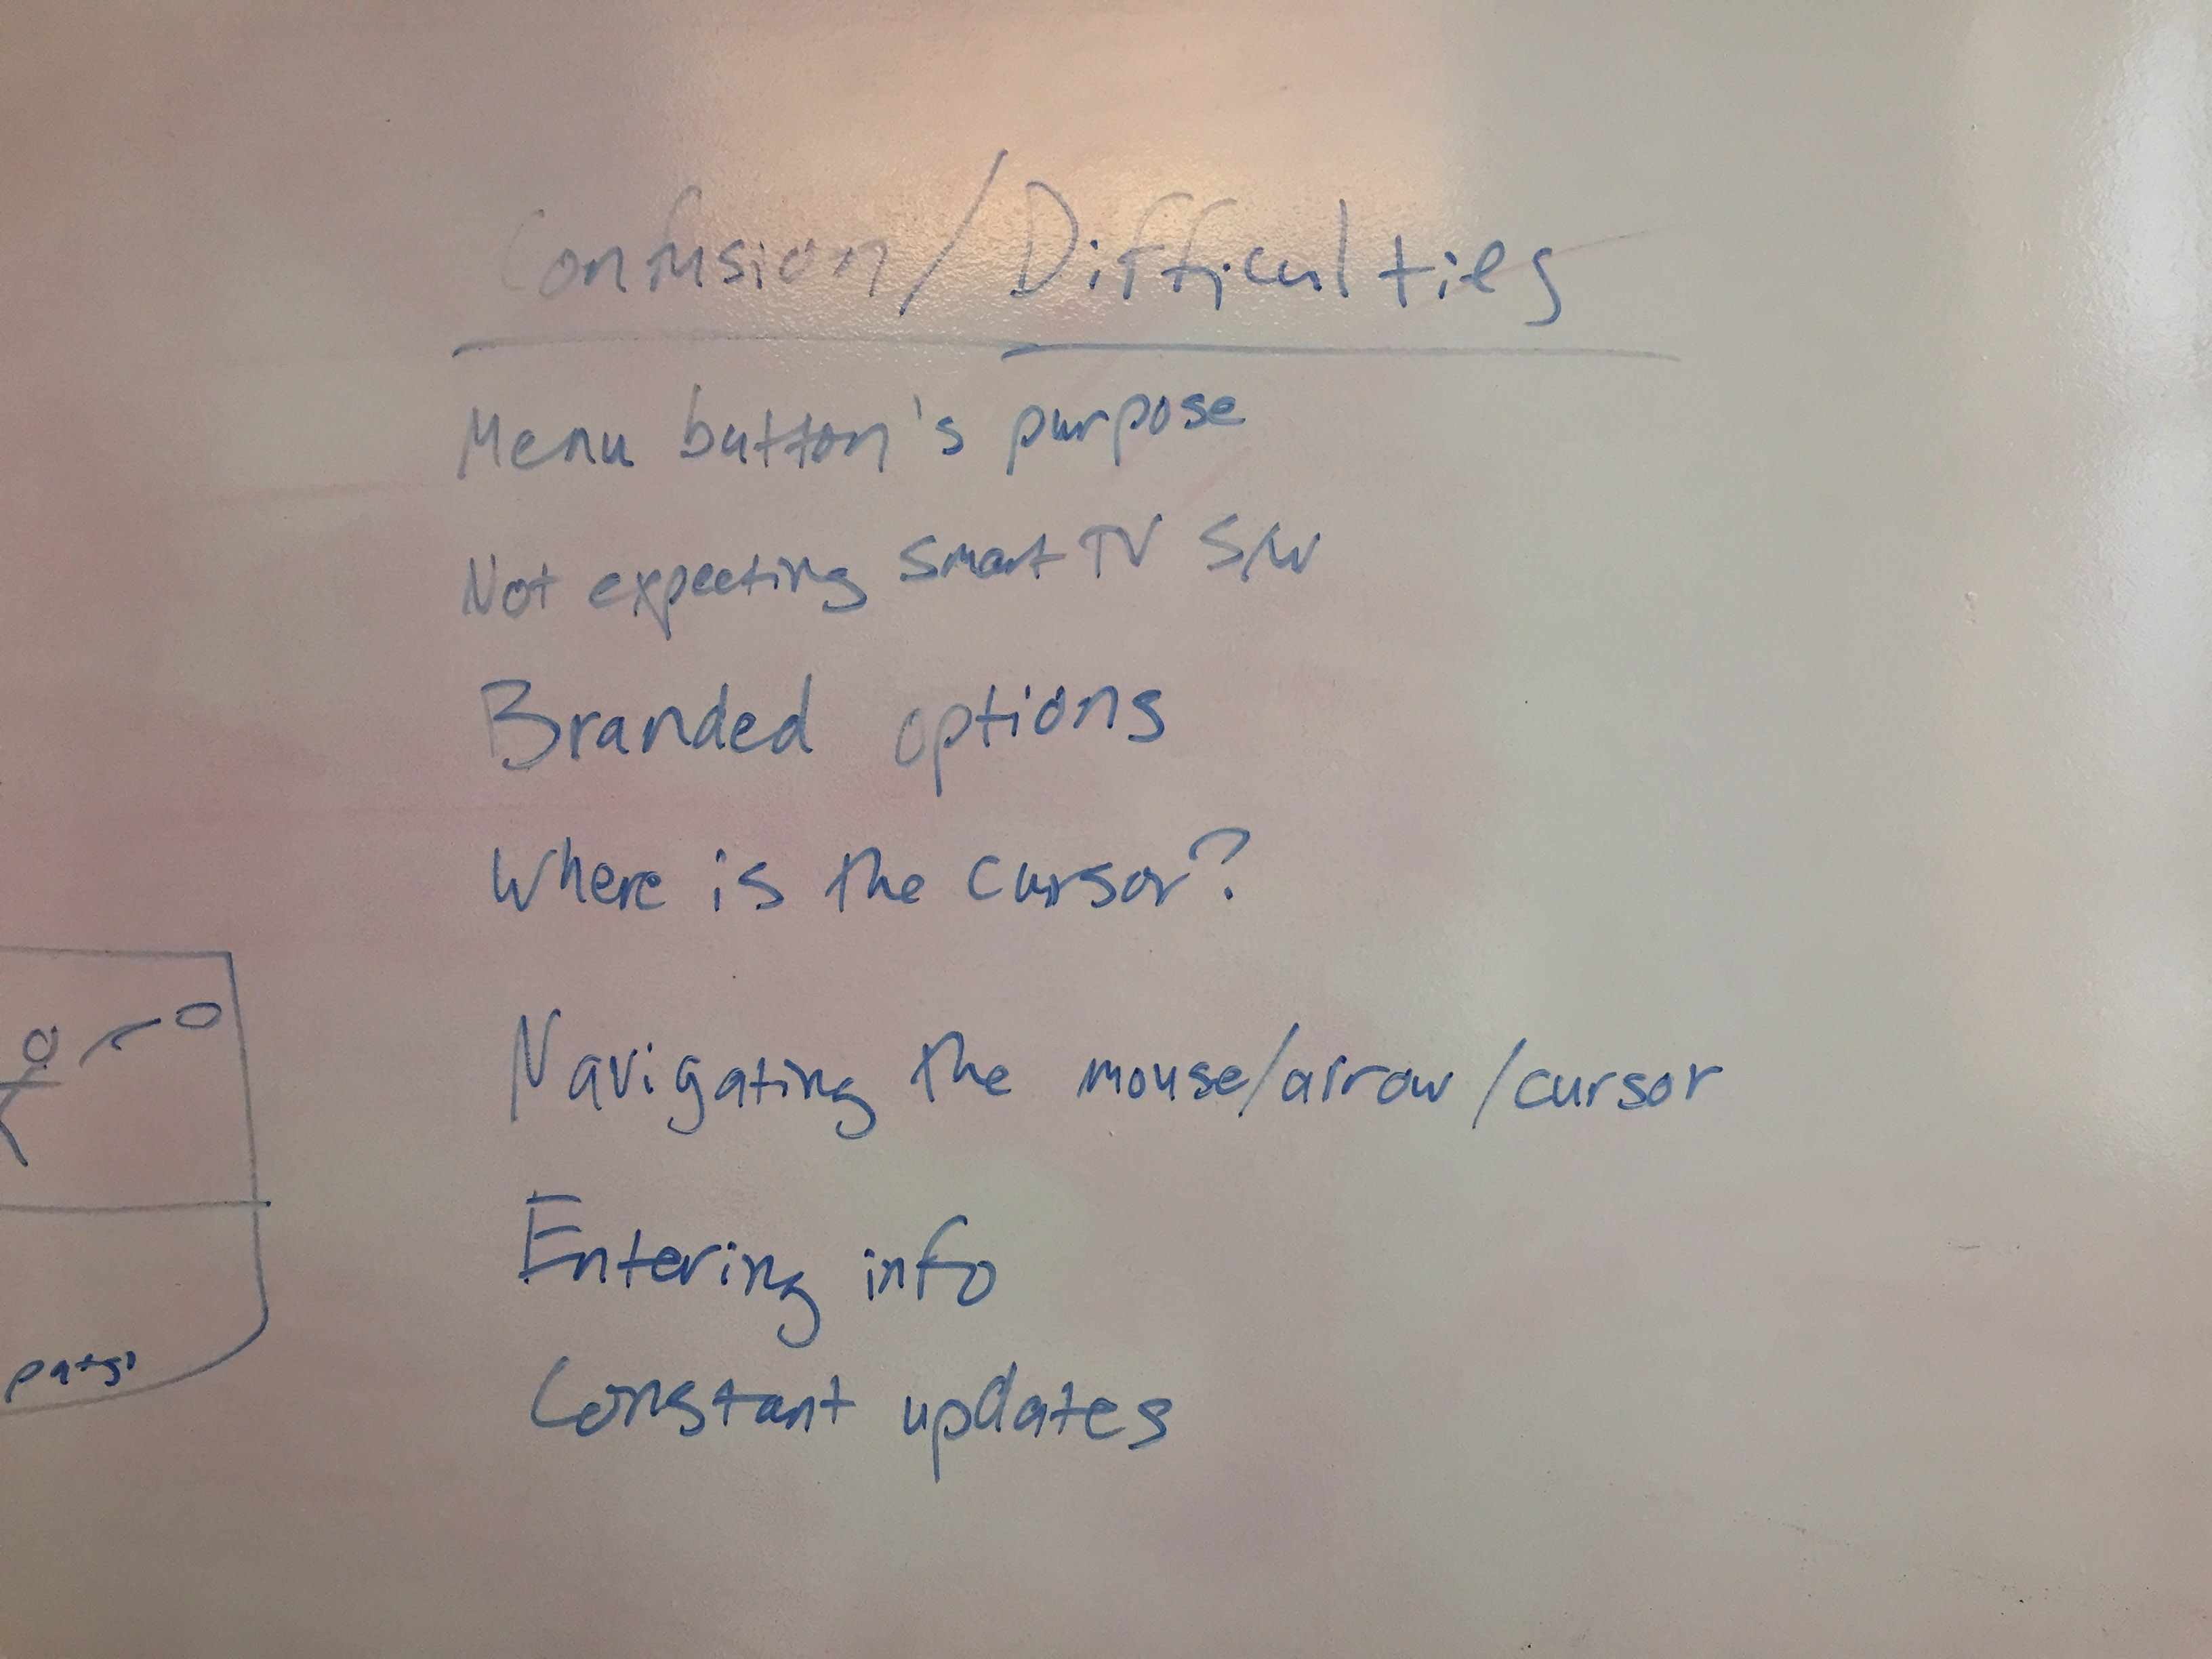 Confusion/Difficulties
Menu button's purpose
Not expecting smart TV S/W
Branded options
Where is the cursor?
Navigating the mouse/arrow/cursor
Entering info
Constant updates